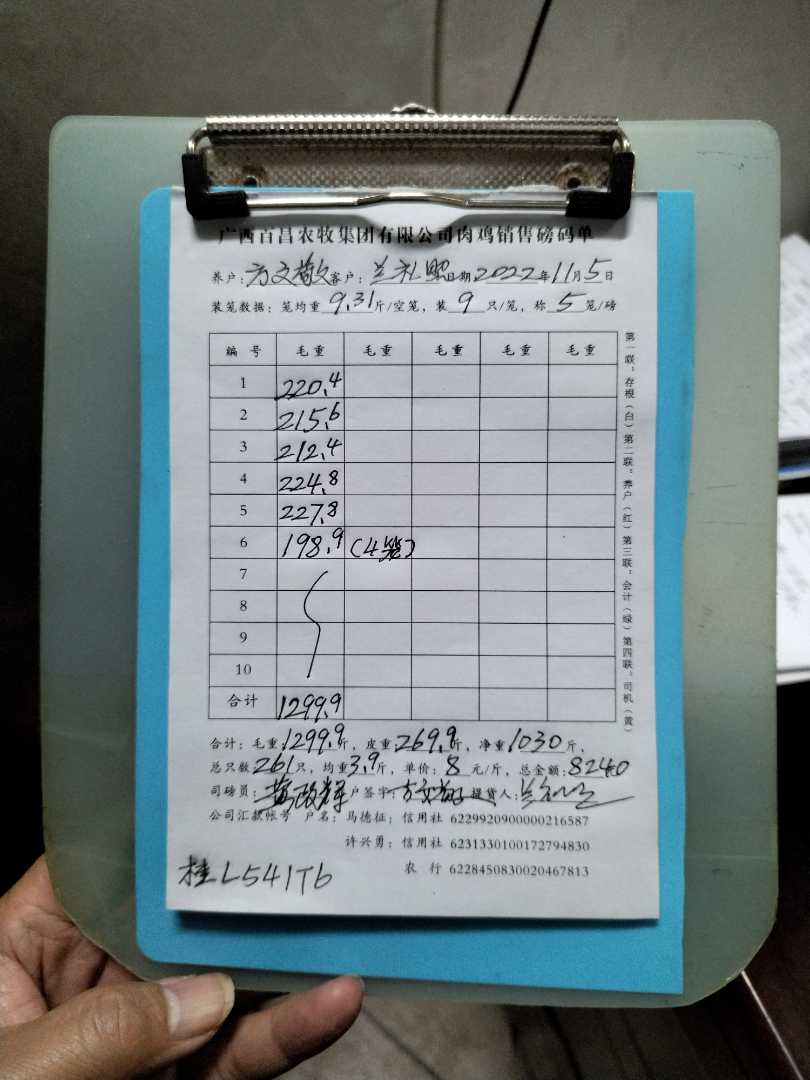 广西百昌农牧集团有限公司肉鸡销售磅码单
养户:方文敬 客户:兰礼照 日期2022年11月5日
装笼数据:笼均重9.31斤/空笼,装9只/笼,称5笼/磅
编号 毛重 毛重 毛重 毛重 毛重
1 220.4
2 215.6
3 212.4
4 224.8
5 227.8
6 198.9 (4笼)
7
8
9
10
合计 1299.9
合计:毛重:1299.9斤,皮重:269.9斤,净重1030斤,
总只数261只,均重3.9斤,单价:8元/斤,总金额:8240
司磅员: 户签字: 提货人:
公司汇款帐号 户名:马德征:信用社 6229920900000216587
许兴勇:信用社 6231330100172794830
农行 6228450830020467813
桂L541T6
第一联:存根(白)第二联:养户(红)第三联:会计(绿)第四联:司机(黄)